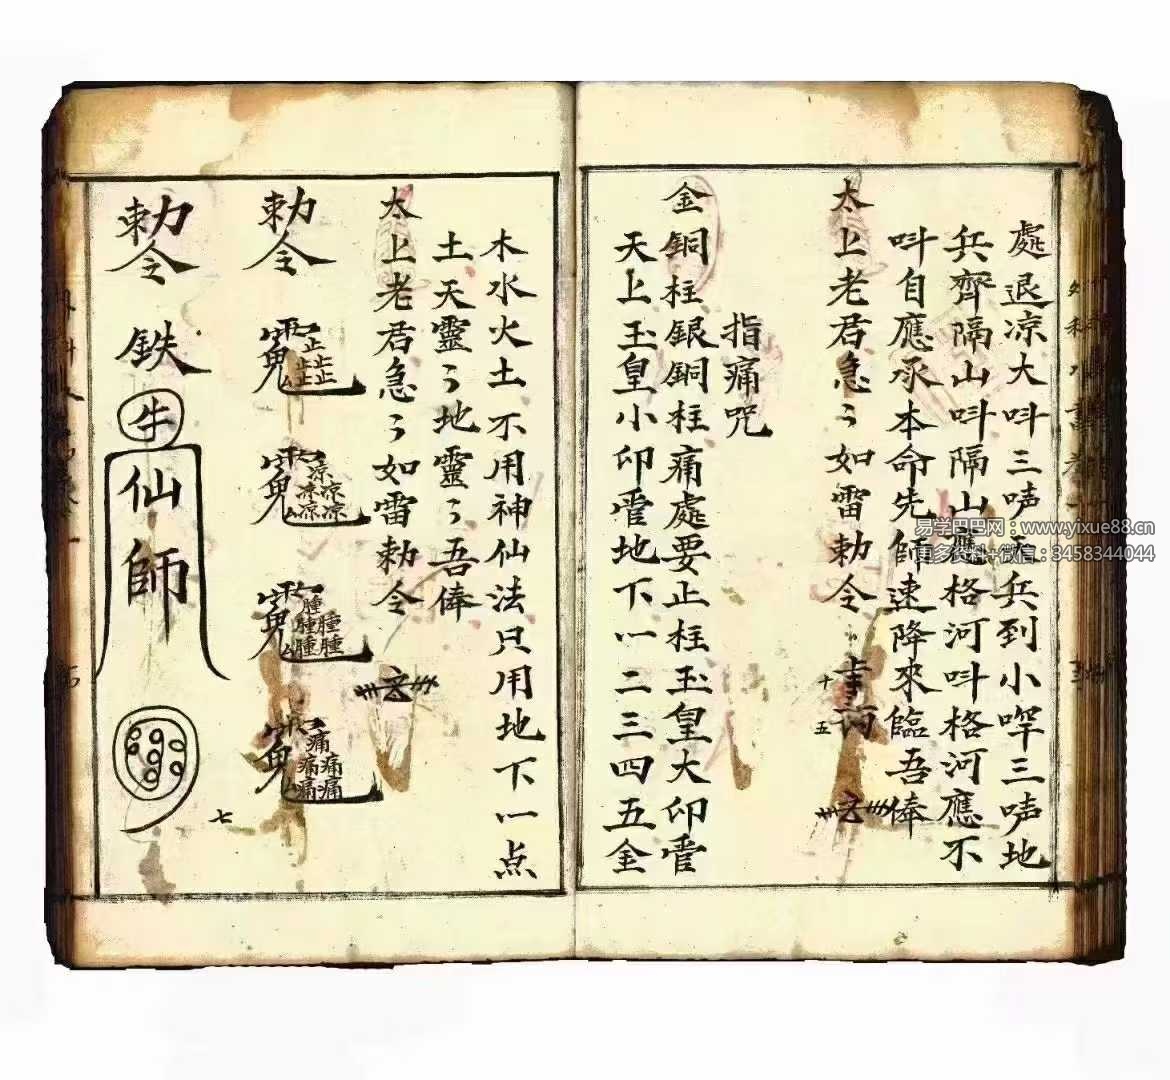 處退凉大呌三唪大兵到小㖕三唪地
兵齊隔山呌隔山應格河呌格河應不
呌自應承本命先師速降來臨吾俸
太上老君急〻如雷勅令
十五
指痛咒
金銅柱銀銅柱痛處要止柱玉皇大印管
天上玉皇小印管地下一二三四五金
木水火土不用神仙法只用地下一点
土天靈〻地靈〻吾俸
太上老君急〻如雷勅令
勅令
止止止止止
凉凉凉凉凉
腫腫腫腫腫
痛痛痛痛痛
勅令 鉄牛仙師
七
易学巴巴网：www.yixue88.cn
更多资料+微信：3458344044